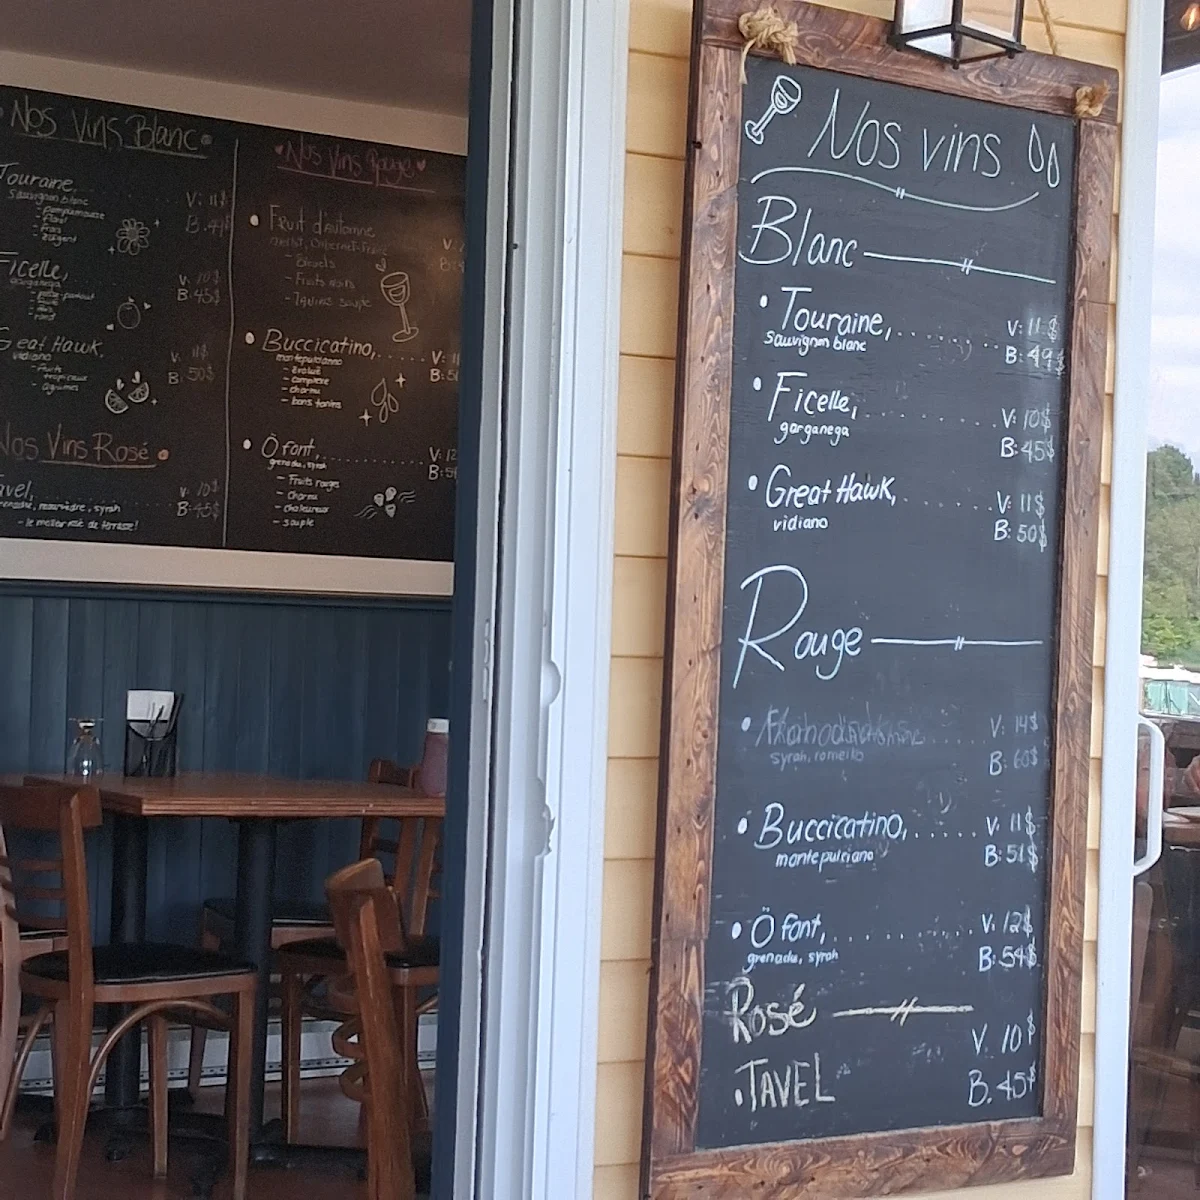 Nos Vins Blanc
Touraine,
Sauvignon blanc
- Pamplemousse
V: 11$
B: 49$
Ficelle,
garganega
V: 10$
B: 45$
Great Hawk,
vidiano
- fruits
tropicaux
- agrumes
V: 11$
B: 50$
Nos Vins Rosé
avel,
V: 10$
B: 45$
- le meilleur rosé de terrasse!
Nos Vins Rouge
Fruit d'Automne
merlot, Cabernet-Franc
- Bleuets
- Fruits noirs
- Tanins souple
V:
Buccicatino,
montepulciano
- complexe
- charnu
- bons tanins
V: 11
B: 51
Ö font,
grenache, syrah
- Fruits rouges
- charnu
- chaleureux
- souple
V: 12
B: 5
Nos vins
Blanc
Touraine,
sauvignon blanc
V: 11$
B: 49$
Ficelle,
garganega
V: 10$
B: 45$
Great Hawk,
vidiano
V: 11$
B: 50$
Rouge
syrah, romeiko
V: 14$
B: 60$
Buccicatino,
montepulciano
V: 11$
B: 51$
Ö font,
grenache, syrah
V: 12$
B: 54$
Rosé
TAVEL
V. 10$
B. 45$